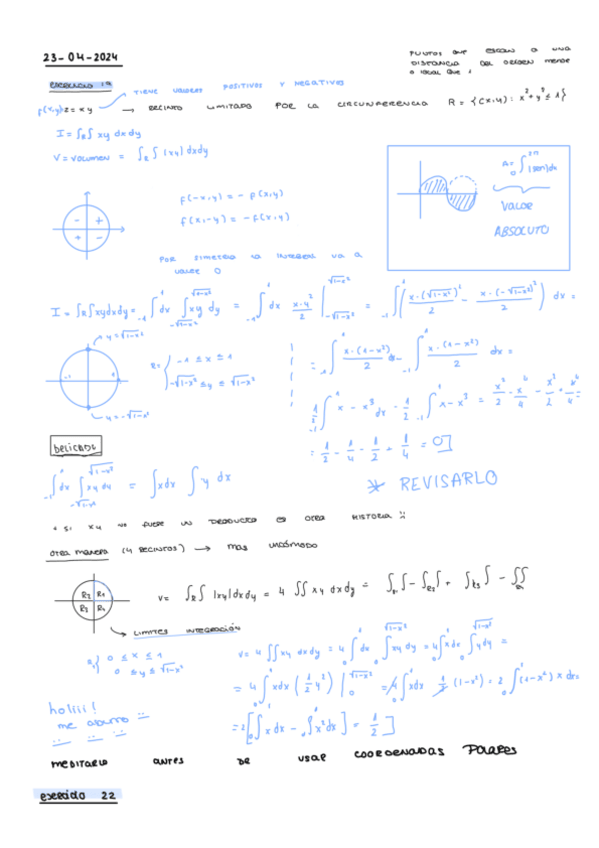 23-04-2024
PUNTOS QUE ESTÁN A UNA
DISTANCIA DEL ORIGEN MENOR
O IGUAL QUE 1
EJERCICIO 19
TIENE VALORES POSITIVOS Y NEGATIVOS
f(x,y) z = xy → RECINTO LIMITADO POR LA CIRCUNFERENCIA R = {(x,y): x²+y² ≤ 1}
I = ∫R∫ xy dx dy
V = VOLUMEN = ∫R∫ |xy| dx dy
A = ∫₀^2π |sen| dx
VALOR
ABSOLUTO
f(-x,y) = - f(x,y)
f(x,-y) = - f(x,y)
- +
+ -
POR SIMETRÍA LA INTEGRAL VA A
VALER 0
I = ∫R∫ xy dx dy = ∫₋₁¹ dx ∫ xy dy = ∫₋₁¹ dx x·y²/2 | = ∫₋₁¹ ( x·(√1-x²)²/2 - x·(-√1-x²)²/2 ) dx =
y = √1-x²
R = { -1 ≤ x ≤ 1
-√1-x² ≤ y ≤ √1-x²
y = -√1-x²
= ∫₋₁¹ x·(1-x²)/2 dx - ∫₋₁¹ x·(1-x²)/2 dx =
1/2 ∫₋₁¹ x - x³ dx - 1/2 ∫₋₁¹ x - x³ =
= 1/2 - 1/4 - 1/2 + 1/4 = 0]
DELICADO
∫₋₁¹ dx ∫ xy dy = ∫ x dx ∫ y dx
* REVISARLO
* SI XY NO FUERE UN PRODUCTO ES OTRA HISTORIA
OTRA MANERA (4 RECINTOS) → MAS INCÓMODO
R2 R1
R3 R4
V = ∫R∫ |xy| dx dy = 4 ∫∫ xy dx dy =
LIMITES INTEGRACIÓN
{ 0 ≤ x ≤ 1
0 ≤ y ≤ √1-x²
V = 4 ∫∫ xy dx dy = 4 ∫₀¹ dx ∫₀^√1-x² xy dy = 4 ∫₀¹ x dx ∫₀^√1-x² y dy =
= 4 ∫₀¹ x dx (1/2 y²) |₀^√1-x² = 4 ∫₀¹ x dx 1/2 (1-x²) = 2 ∫₀¹ (1-x²) x dx =
= 2 [ ∫₀¹ x dx - ∫₀¹ x³ dx ] = 1/2 ]
holiii!
me aburro
MEDITARLO ANTES DE USAR COORDENADAS POLARES
EJERCICIO 22